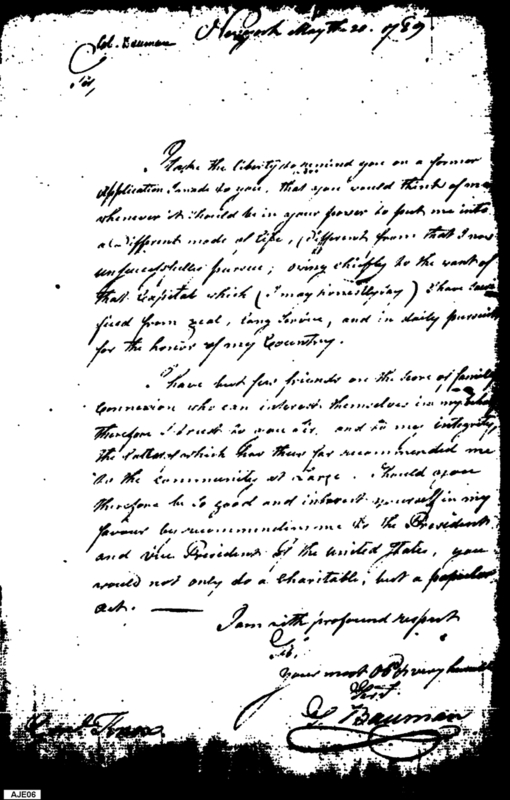 Col. Bauman
New york May the 20. 1789.
Sir,
I take the liberty to remind you on a former
Application I made to you, that you would think of me
whenever it should be in your power to put me into
a different mode of life, (different from that I now
unsuccessfully pursue; owing chiefly to the want of
that Capital which (I may honestly say) I have sacri
ficed from zeal, long service, and in daily pursuit
for the honor of my Country.
I have but few friends on the score of family
Connexion who can interest themselves in my behalf
therefore I trust to you Sir, and to my integrity,
the latter of which has thus far recommended me
to the Community at Large. Should you
therefore be so good and interest yourself in my
favour by recommending me to the President
and Vice President of the United States, you
would not only do a Charitable, but a popular
act.
I am with profound respect
Sir,
your most Obd. & very humble
Servt
S Bauman
Genl. Knox
AJE06